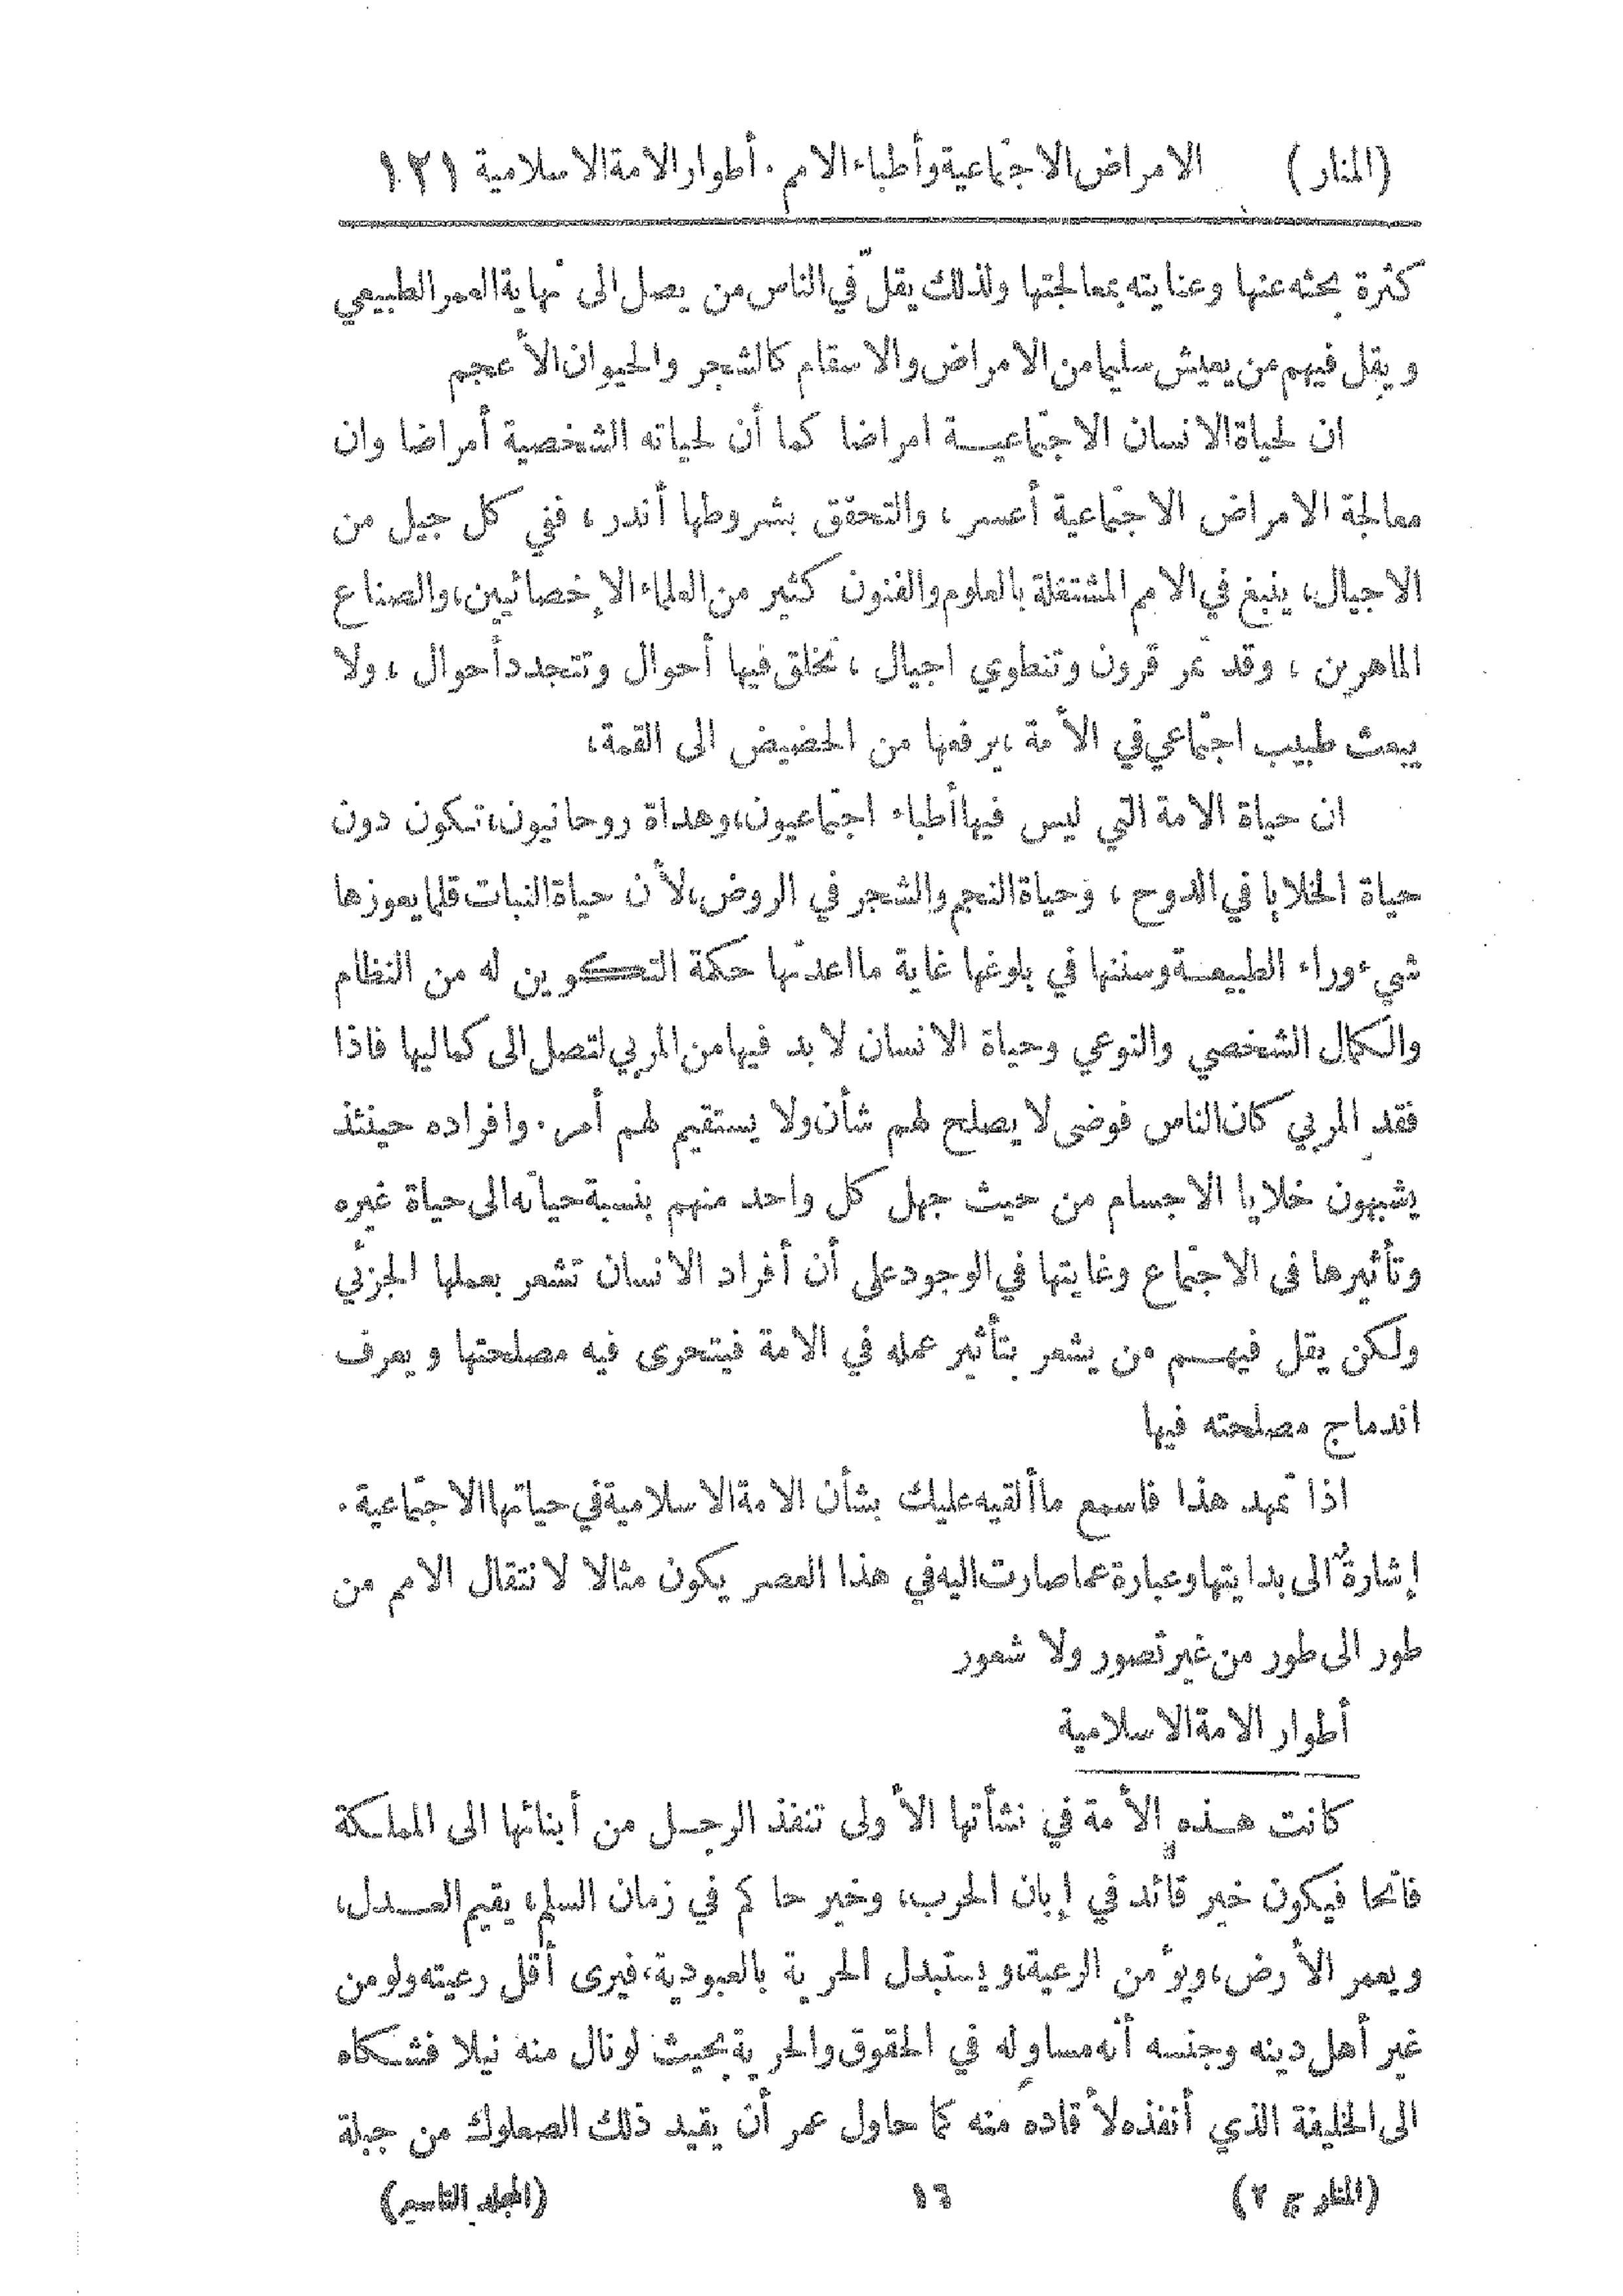 (المنار) الامراض الاجتماعية وأطباء الامم . أطوار الامة الاسلامية ١٢١
كثرة بحثه عنها وعنايته بمعالجتها ولذلك يقلّ في الناس من يصل الى نهاية العمر الطبيعي
ويقل فيهم من يعيش سليما من الامراض والاسقام كالشجر والحيوان الأعجم
ان لحياة الانسان الاجتماعية امراضا كما أن لحياته الشخصية أمراضا وان
معالجة الامراض الاجتماعية أعسر ، والتحقق بشروطها أندر ، ففي كل جيل من
الاجيال، ينبغ في الامم المشتغلة بالعلوم والفنون كثير من العلماء الإخصائيين، والصناع
الماهرين ، وقد تمر قرون وتنطوي اجيال ، تخلق فيها أحوال وتتجدد أحوال ، ولا
يبعث طبيب اجتماعي في الأمة ، يرفعها من الحضيض الى القمة،
ان حياة الامة التي ليس فيها أطباء اجتماعيون، وهداة روحانيون، تكون دون
حياة الخلايا في الدوح ، وحياة النجم والشجر في الروض، لأن حياة النبات قلما يعوزها
شيء وراء الطبيعة وسننها في بلوغها غاية ما اعدتها حكمة التكوين له من النظام
والكمال الشخصي والنوعي وحياة الانسان لا بد فيها من المربي لتصل الى كماليها فاذا
فقد المربي كان الناس فوضى لا يصلح لهم شأن ولا يستقيم لهم أمر. وافراده حينئذ
يشبهون خلايا الاجسام من حيث جهل كل واحد منهم بنسبة حياته الى حياة غيره
وتأثيرها في الاجتماع وغايتها في الوجود على أن أفراد الانسان تشعر بعملها الجزئي
ولكن يقل فيهم من يشعر بتأثير عمله في الامة فيتحرى فيه مصلحتها ويعرف
اندماج مصلحته فيها
اذا تمهد هذا فاسمع ما ألقيه عليك بشأن الامة الاسلامية في حياتها الاجتماعية .
إشارةٌ الى بدايتها وعبارة عما صارت اليه في هذا العصر يكون مثالا لانتقال الامم من
طور الى طور من غير تصور ولا شعور
أطوار الامة الاسلامية
كانت هذه الأمة في نشأتها الأولى تنفذ الرجل من أبنائها الى المملكة
فاتحا فيكون خير قائد في إبان الحرب، وخير حاكم في زمان السلم، يقيم العدل،
ويعمر الأرض، ويؤمن الرعية، ويستبدل الحرية بالعبودية، فيرى أقل رعيته ولو من
غير أهل دينه وجنسه أنه مساوٍ له في الحقوق والحرية بحيث لو نال منه نيلا فشكاه
الى الخليفة الذي أنفذه لأقاده منه كما حاول عمر أن يقيد ذلك الصعلوك من جبلة
(المنار ج ٢) ١٦ (المجلد التاسع)